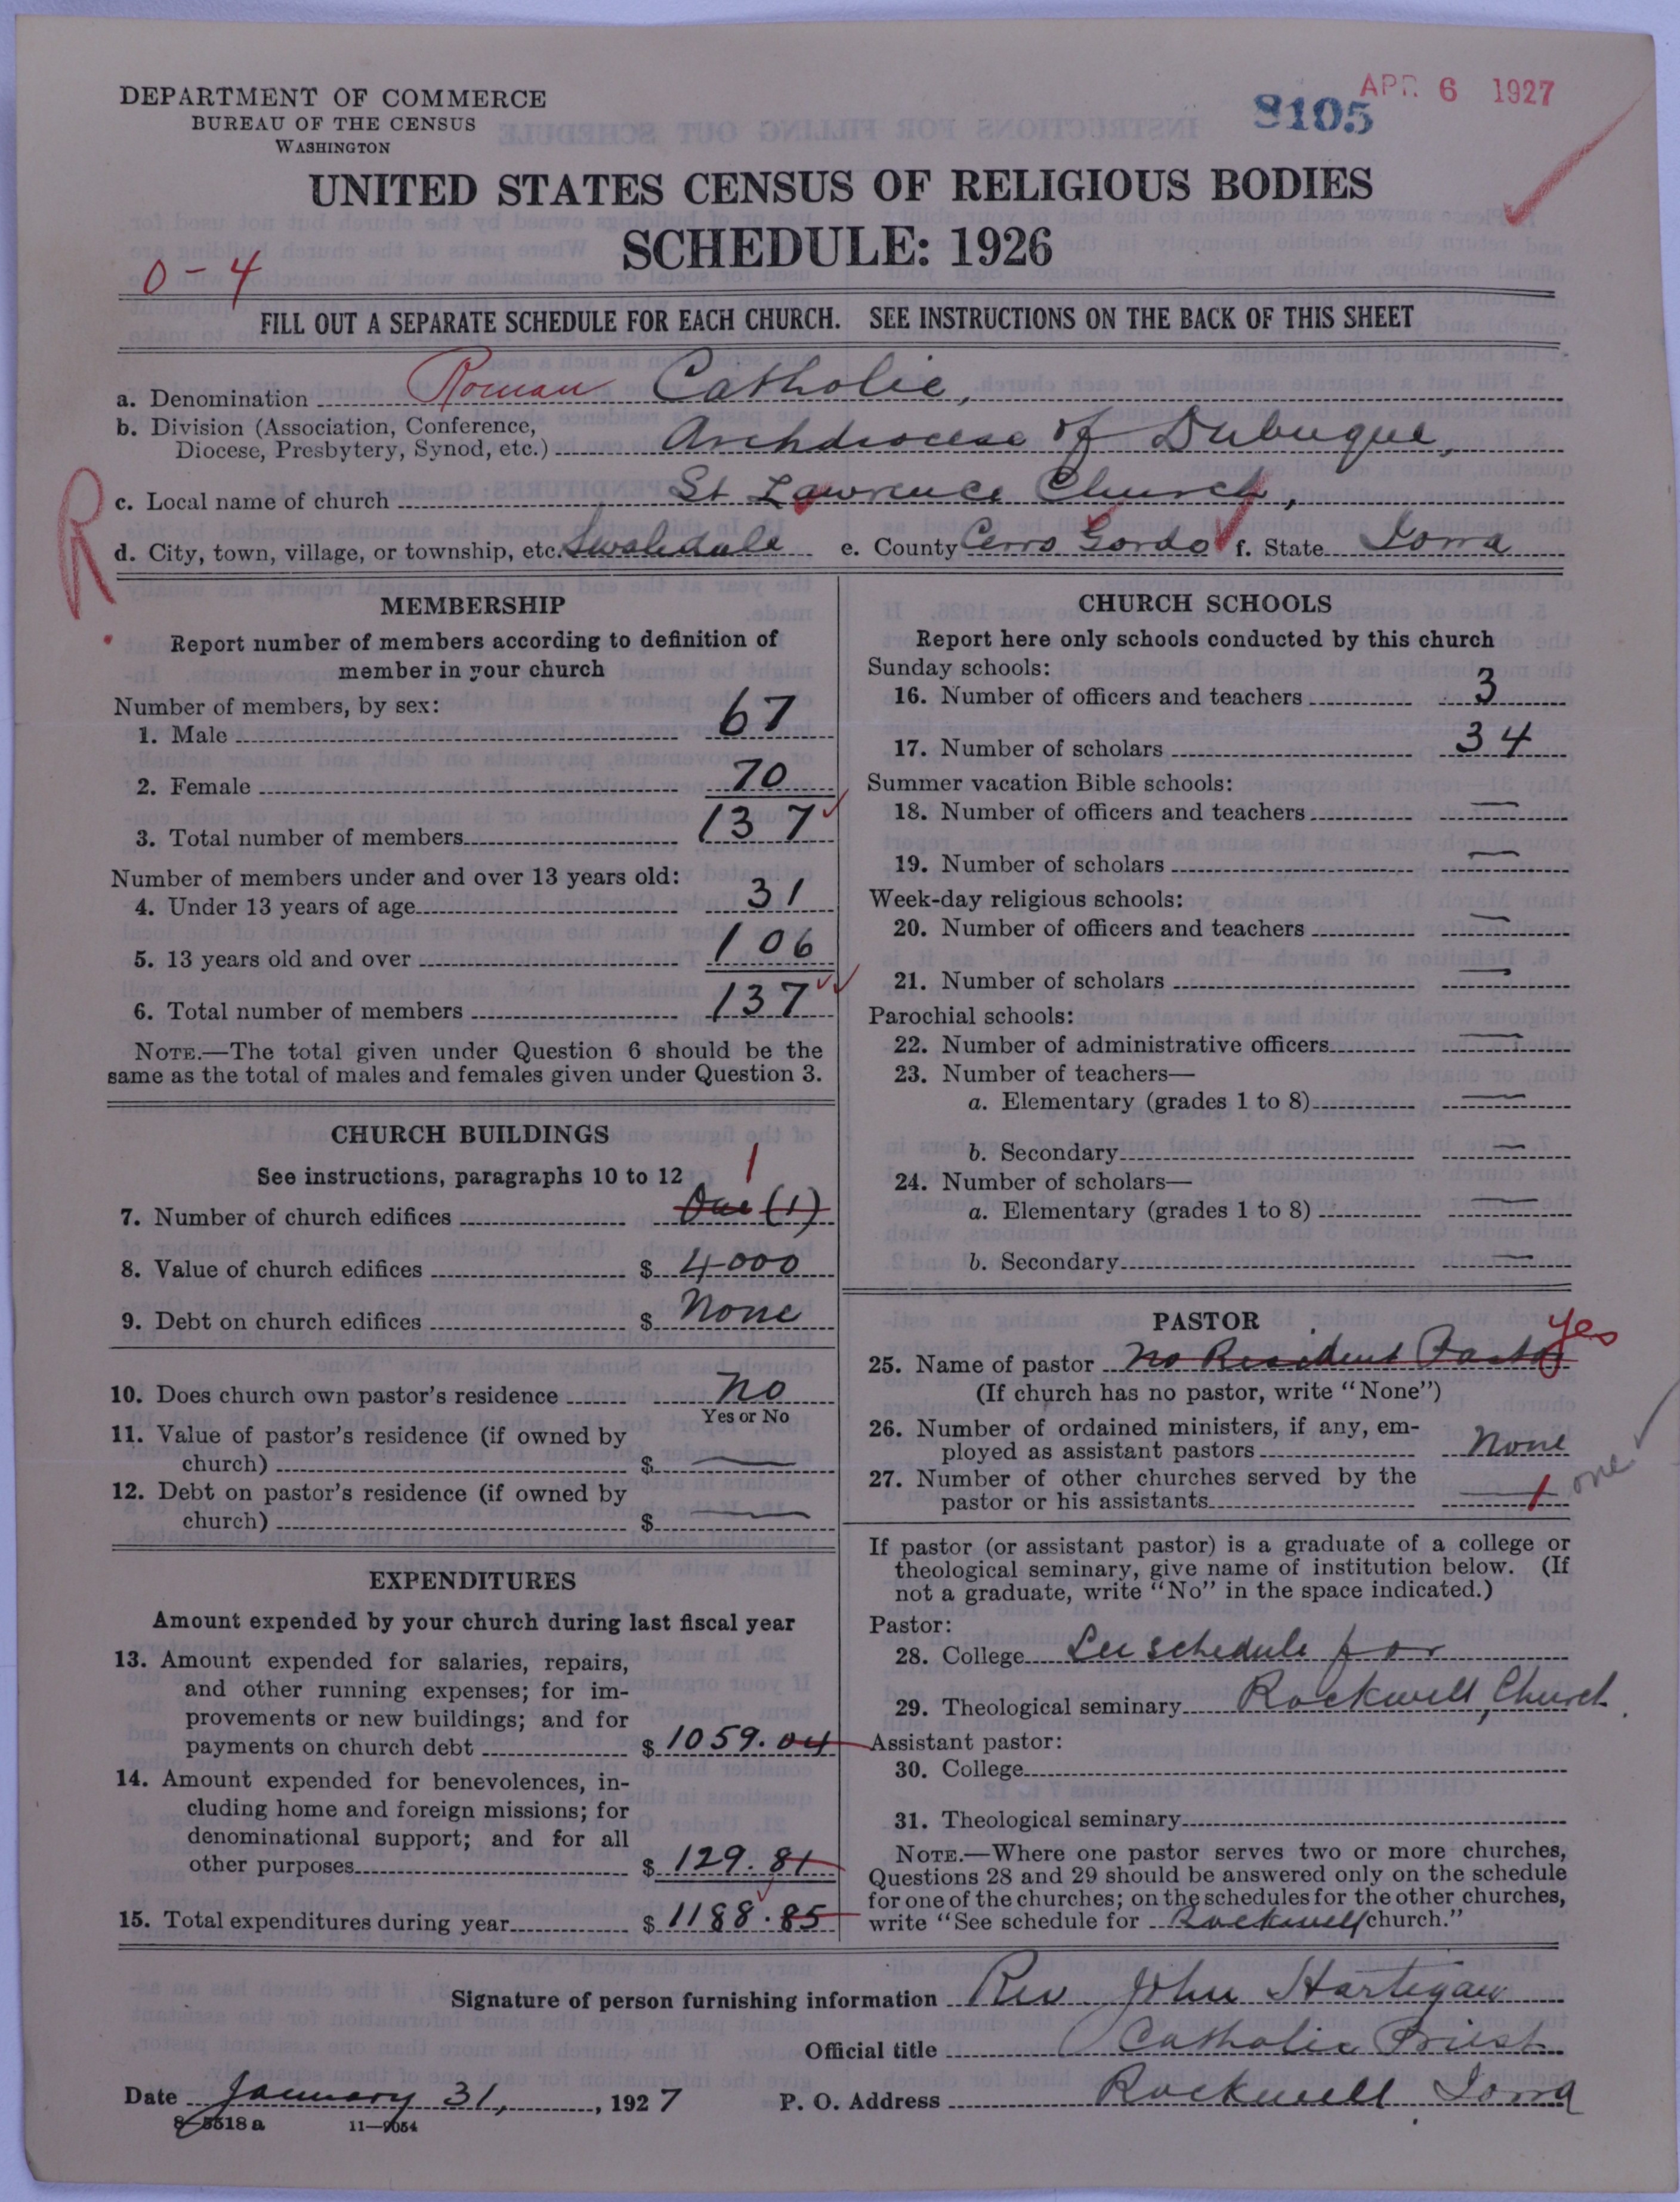 APR 6 1927
8105
DEPARTMENT OF COMMERCE
BUREAU OF THE CENSUS
WASHINGTON
UNITED STATES CENSUS OF RELIGIOUS BODIES
SCHEDULE: 1926
0-4
FILL OUT A SEPARATE SCHEDULE FOR EACH CHURCH. SEE INSTRUCTIONS ON THE BACK OF THIS SHEET
a. Denomination Roman Catholic,
b. Division (Association, Conference, Diocese, Presbytery, Synod, etc.) Archdiocese of Dubuque,
R
c. Local name of church St Lawrence Church,
d. City, town, village, or township, etc. Swaledale e. County Cerro Gordo f. State Iowa
MEMBERSHIP
Report number of members according to definition of
member in your church
Number of members, by sex:
1. Male 67
2. Female 70
3. Total number of members 137
Number of members under and over 13 years old:
4. Under 13 years of age 31
5. 13 years old and over 106
6. Total number of members 137
NOTE.—The total given under Question 6 should be the
same as the total of males and females given under Question 3.
CHURCH BUILDINGS
See instructions, paragraphs 10 to 12
1
7. Number of church edifices One (1)
8. Value of church edifices $ 4000
9. Debt on church edifices $ None
10. Does church own pastor's residence No
Yes or No
11. Value of pastor's residence (if owned by
church) $ —
12. Debt on pastor's residence (if owned by
church) $ —
EXPENDITURES
Amount expended by your church during last fiscal year
13. Amount expended for salaries, repairs,
and other running expenses; for im-
provements or new buildings; and for
payments on church debt $ 1059.04
14. Amount expended for benevolences, in-
cluding home and foreign missions; for
denominational support; and for all
other purposes $ 129.81
15. Total expenditures during year $ 1188.85
CHURCH SCHOOLS
Report here only schools conducted by this church
Sunday schools:
16. Number of officers and teachers 3
17. Number of scholars 34
Summer vacation Bible schools:
18. Number of officers and teachers —
19. Number of scholars —
Week-day religious schools:
20. Number of officers and teachers —
21. Number of scholars —
Parochial schools:
22. Number of administrative officers —
23. Number of teachers—
a. Elementary (grades 1 to 8) —
b. Secondary —
24. Number of scholars—
a. Elementary (grades 1 to 8) —
b. Secondary —
PASTOR
yes
25. Name of pastor No Resident Pastor
(If church has no pastor, write "None")
26. Number of ordained ministers, if any, em-
ployed as assistant pastors None
27. Number of other churches served by the
pastor or his assistants — 1 one
If pastor (or assistant pastor) is a graduate of a college or
theological seminary, give name of institution below. (If
not a graduate, write "No" in the space indicated.)
Pastor:
28. College See schedule for
29. Theological seminary Rockwell, Church.
Assistant pastor:
30. College
31. Theological seminary
NOTE.—Where one pastor serves two or more churches,
Questions 28 and 29 should be answered only on the schedule
for one of the churches; on the schedules for the other churches,
write "See schedule for Rockwell church."
Signature of person furnishing information Rev John Hartigan
Official title Catholic Priest
Date January 31, 1927 P. O. Address Rockwell Iowa
8-5518 a 11-9054